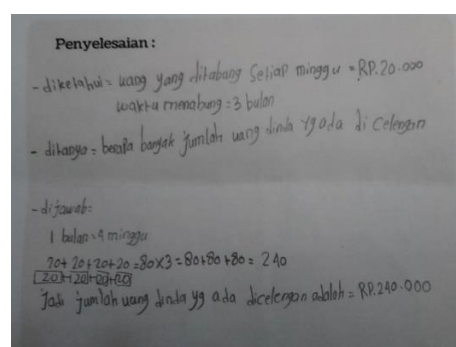 Penyelesaian :
- diketahui = uang yang ditabang setiap minggu = RP.20.000
waktu menabung = 3 bulan
- ditanya = berapa banyak jumlah uang dinda yg ada di celengan
- dijawab =
1 bulan = 4 minggu
20+20+20+20 = 80x3 = 80+80+80 = 240
20+20+20+20
Jadi jumlah uang dinda yg ada dicelengan adalah = RP.240.000